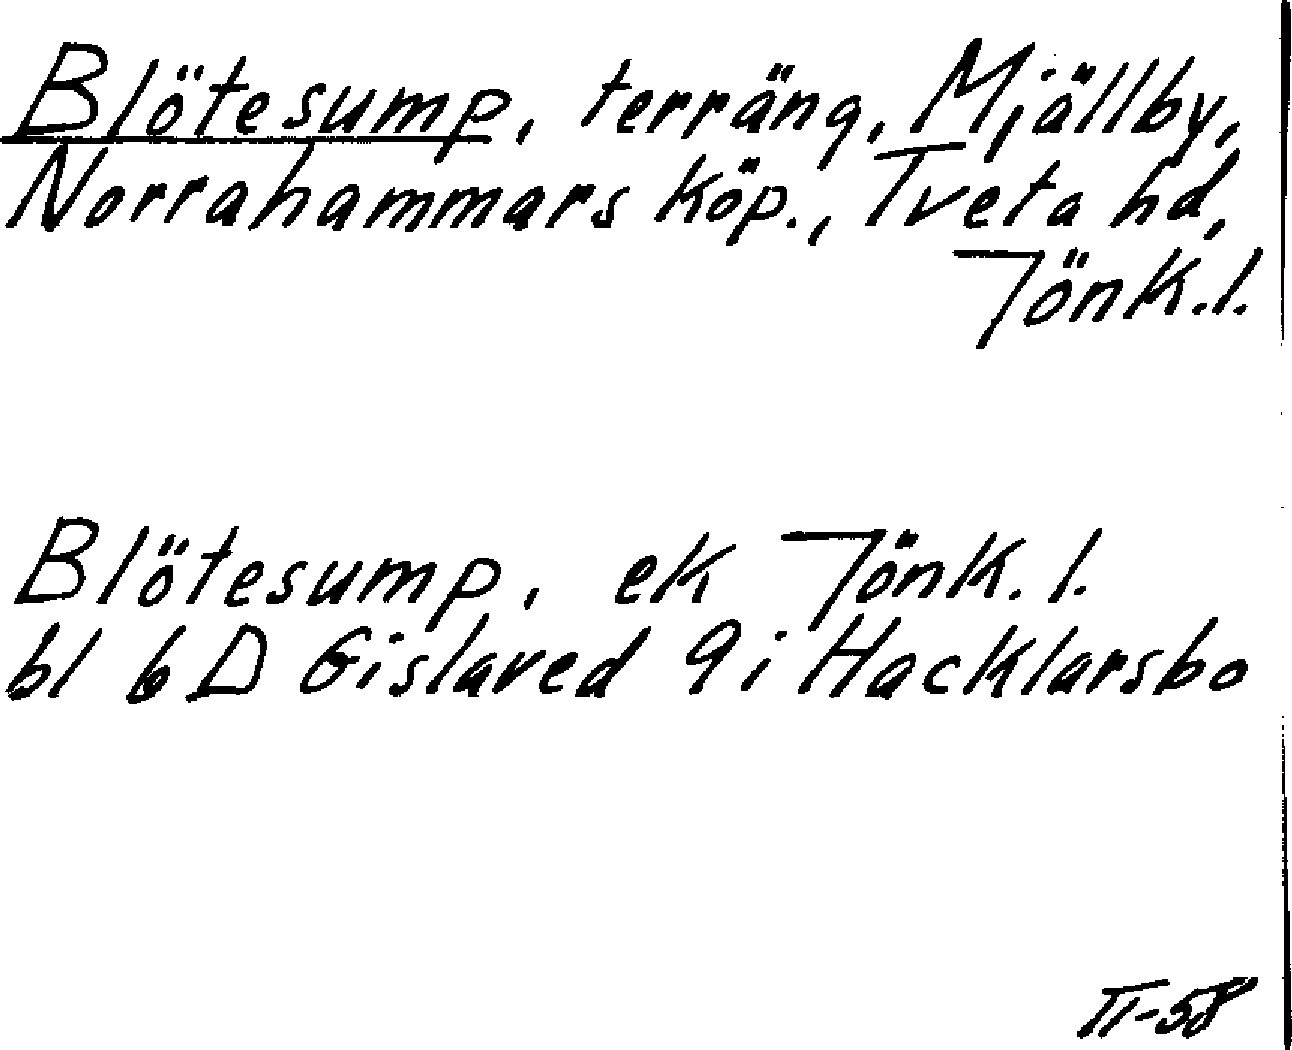 Blötesump, terräng, Mjällby,
Norrahammars köp., Tveta hd,
Jönk.l.
Blötesump, ek Jönk.l.
bl 6D Gislaved 9i Hacklarsbo
TI-58